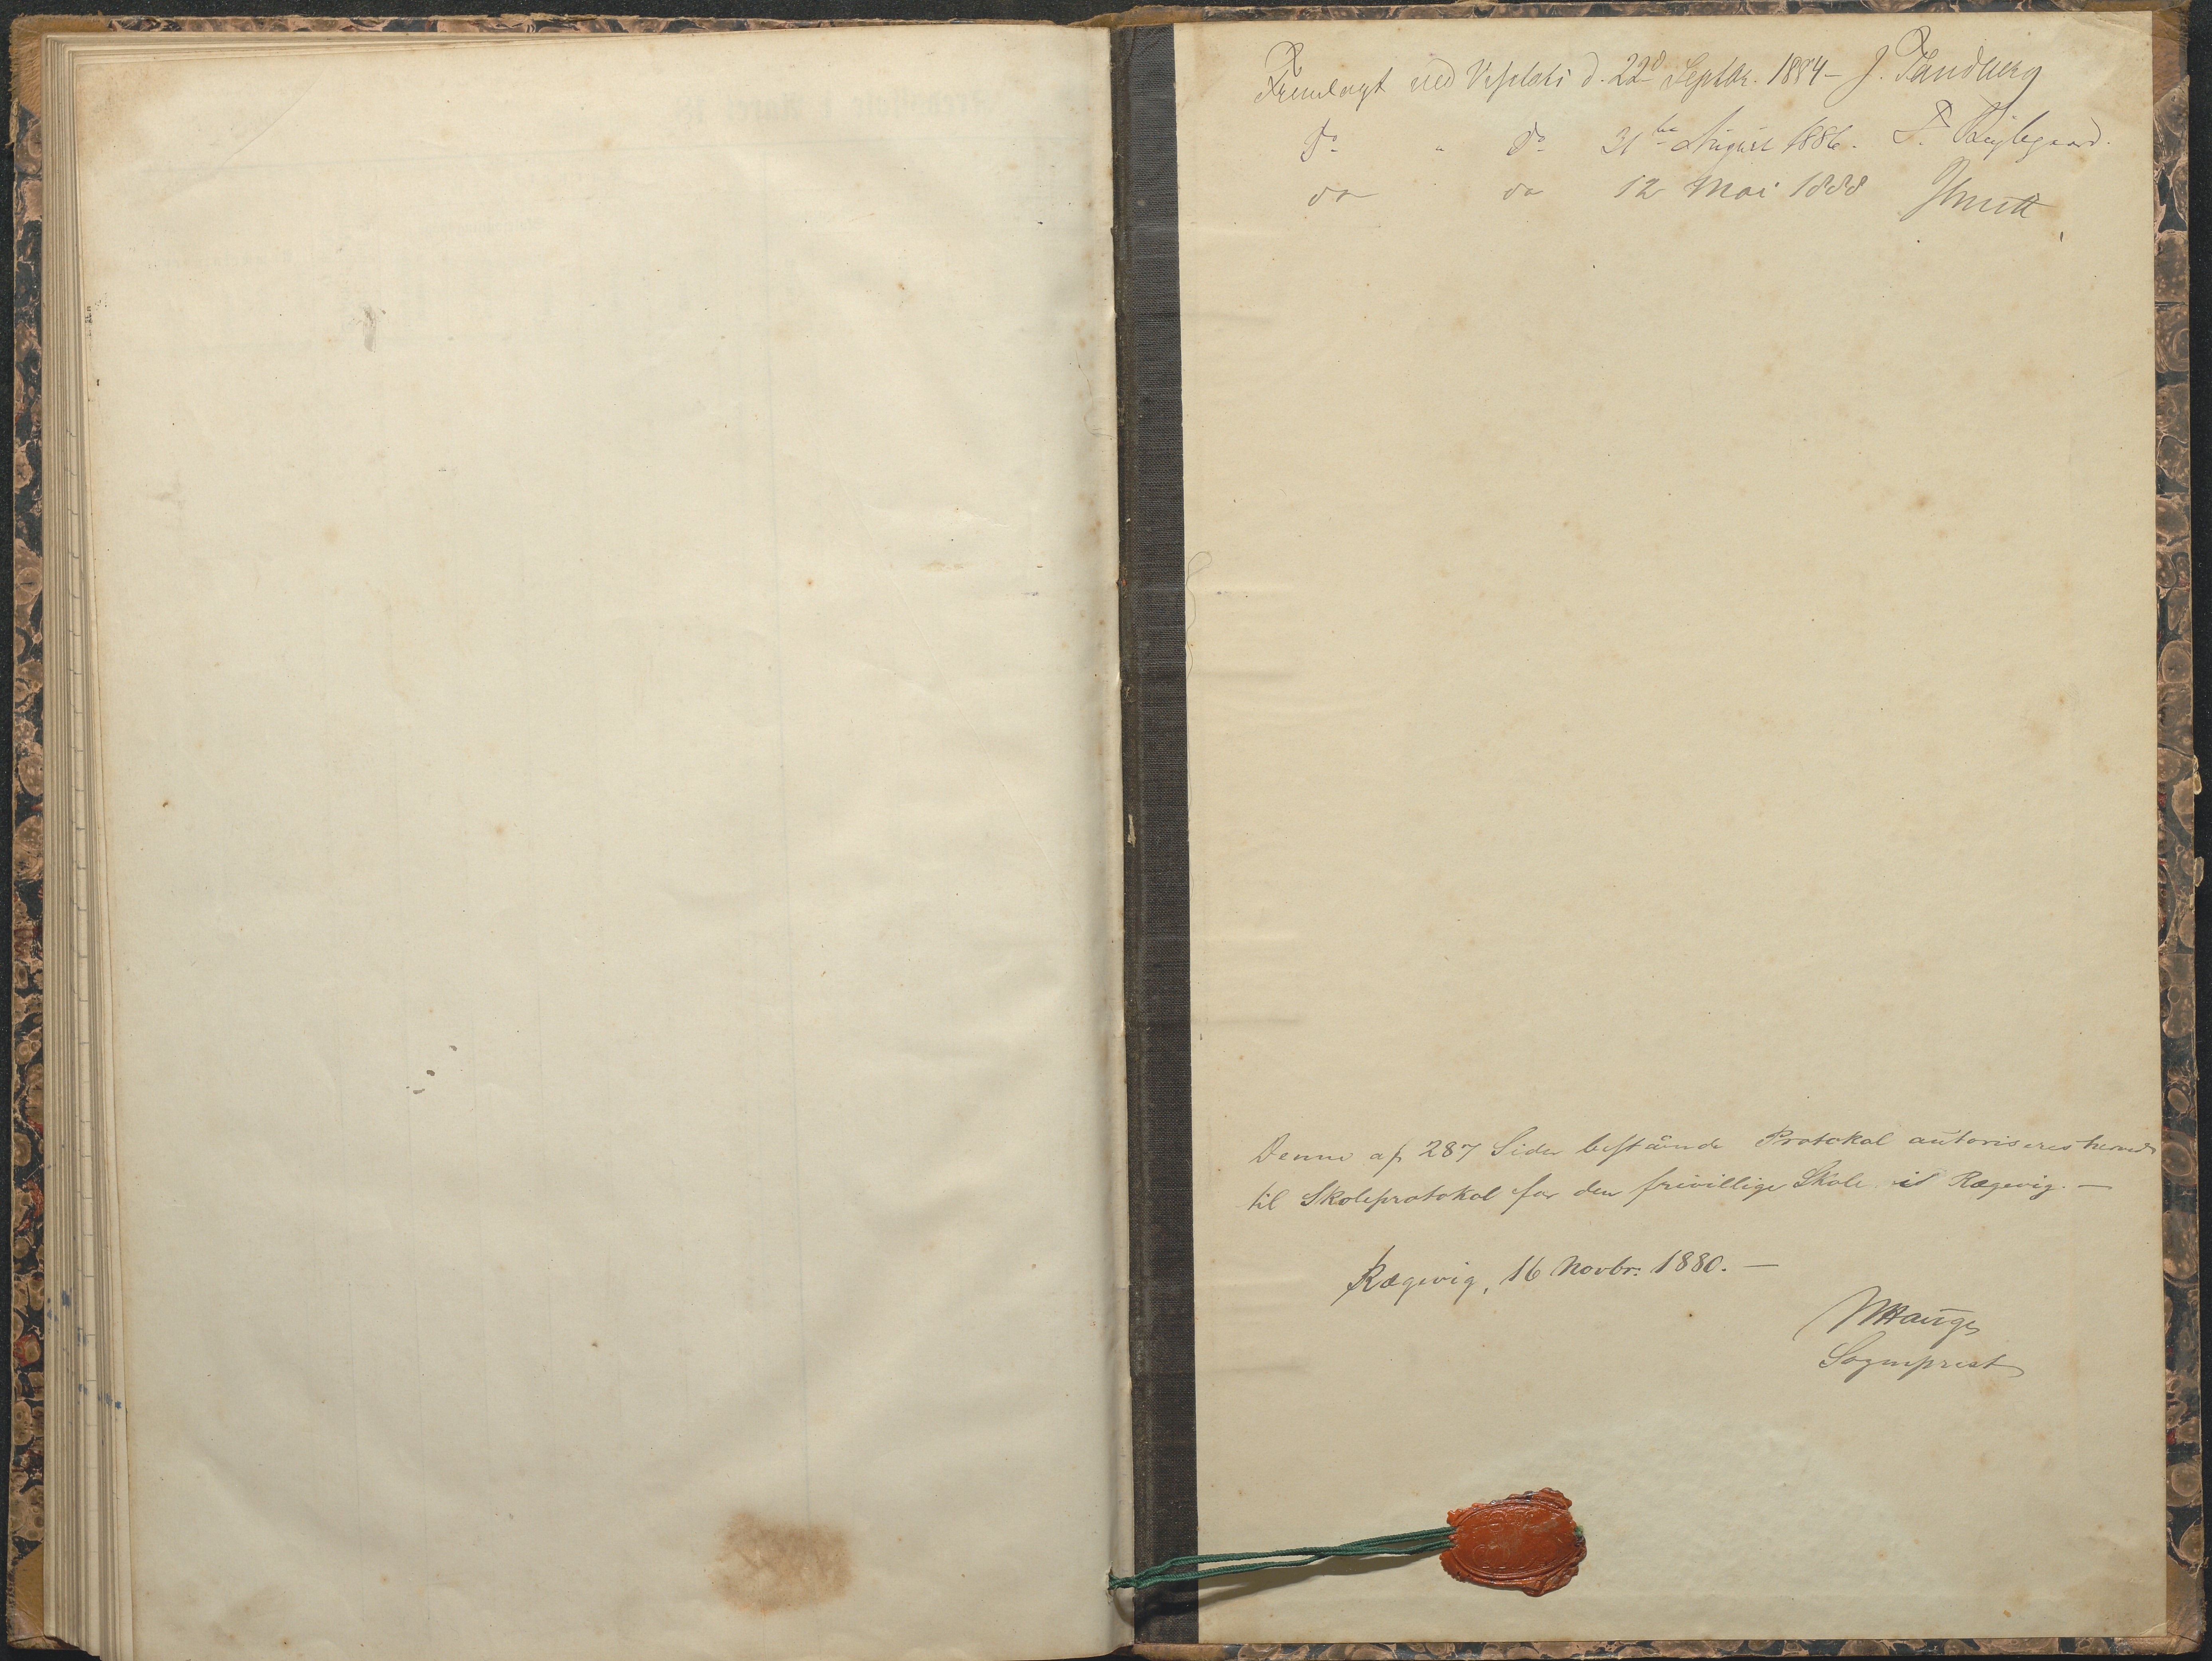 Fremlagt ved Visitats d. 22d Septbr. 1884 – J. Sandberg
Do " Do 31te August 1886.
do " do 12 Mai 1888 Smitt
Denne af 287 Sider bestående Protokol autoriseres herved
til Skoleprotokol for den frivillige Skole i Rægevig. –
Rægevig, 16 Novbr. 1880. –
Hauge
Sogneprest